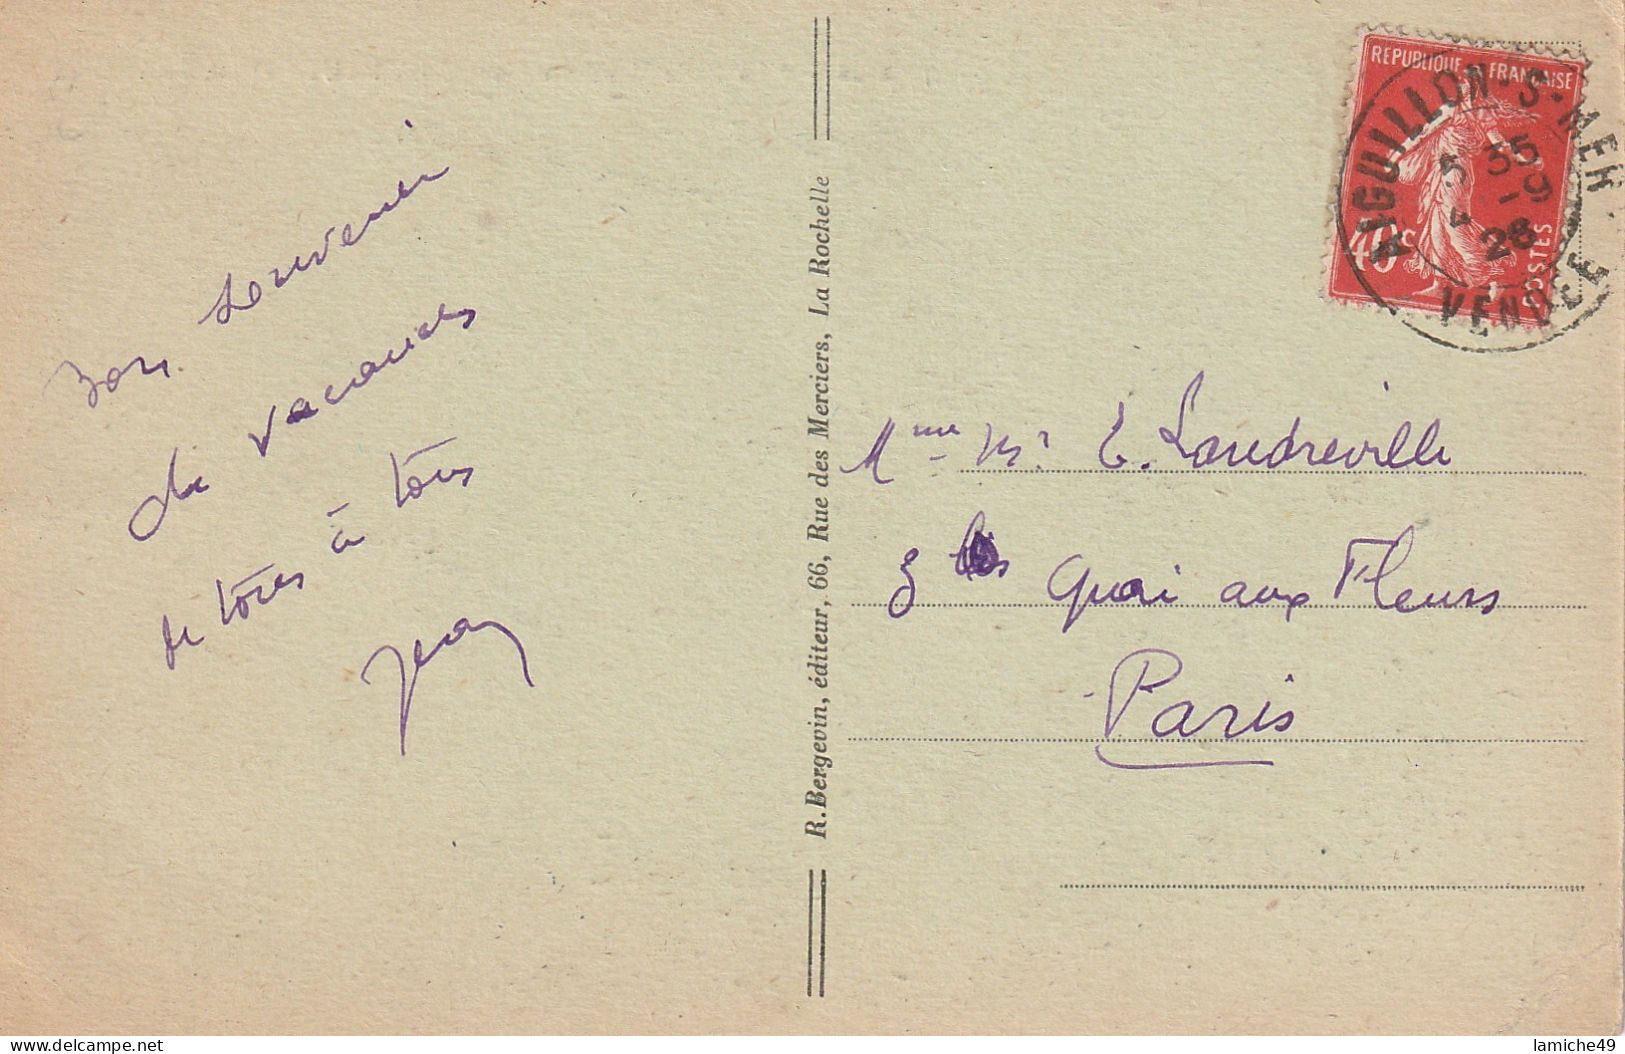 Bon souvenir
de vacances
de tous à tous
Jean
R. Bergevin, éditeur, 66, Rue des Merciers, La Rochelle
REPUBLIQUE FRANÇAISE
40c
POSTES
AIGUILLON-S-MER
5 35
-9
26
VENDÉE
Mme Mr E. Landreville
3 bis Quai aux Fleurs
Paris
lamiche49